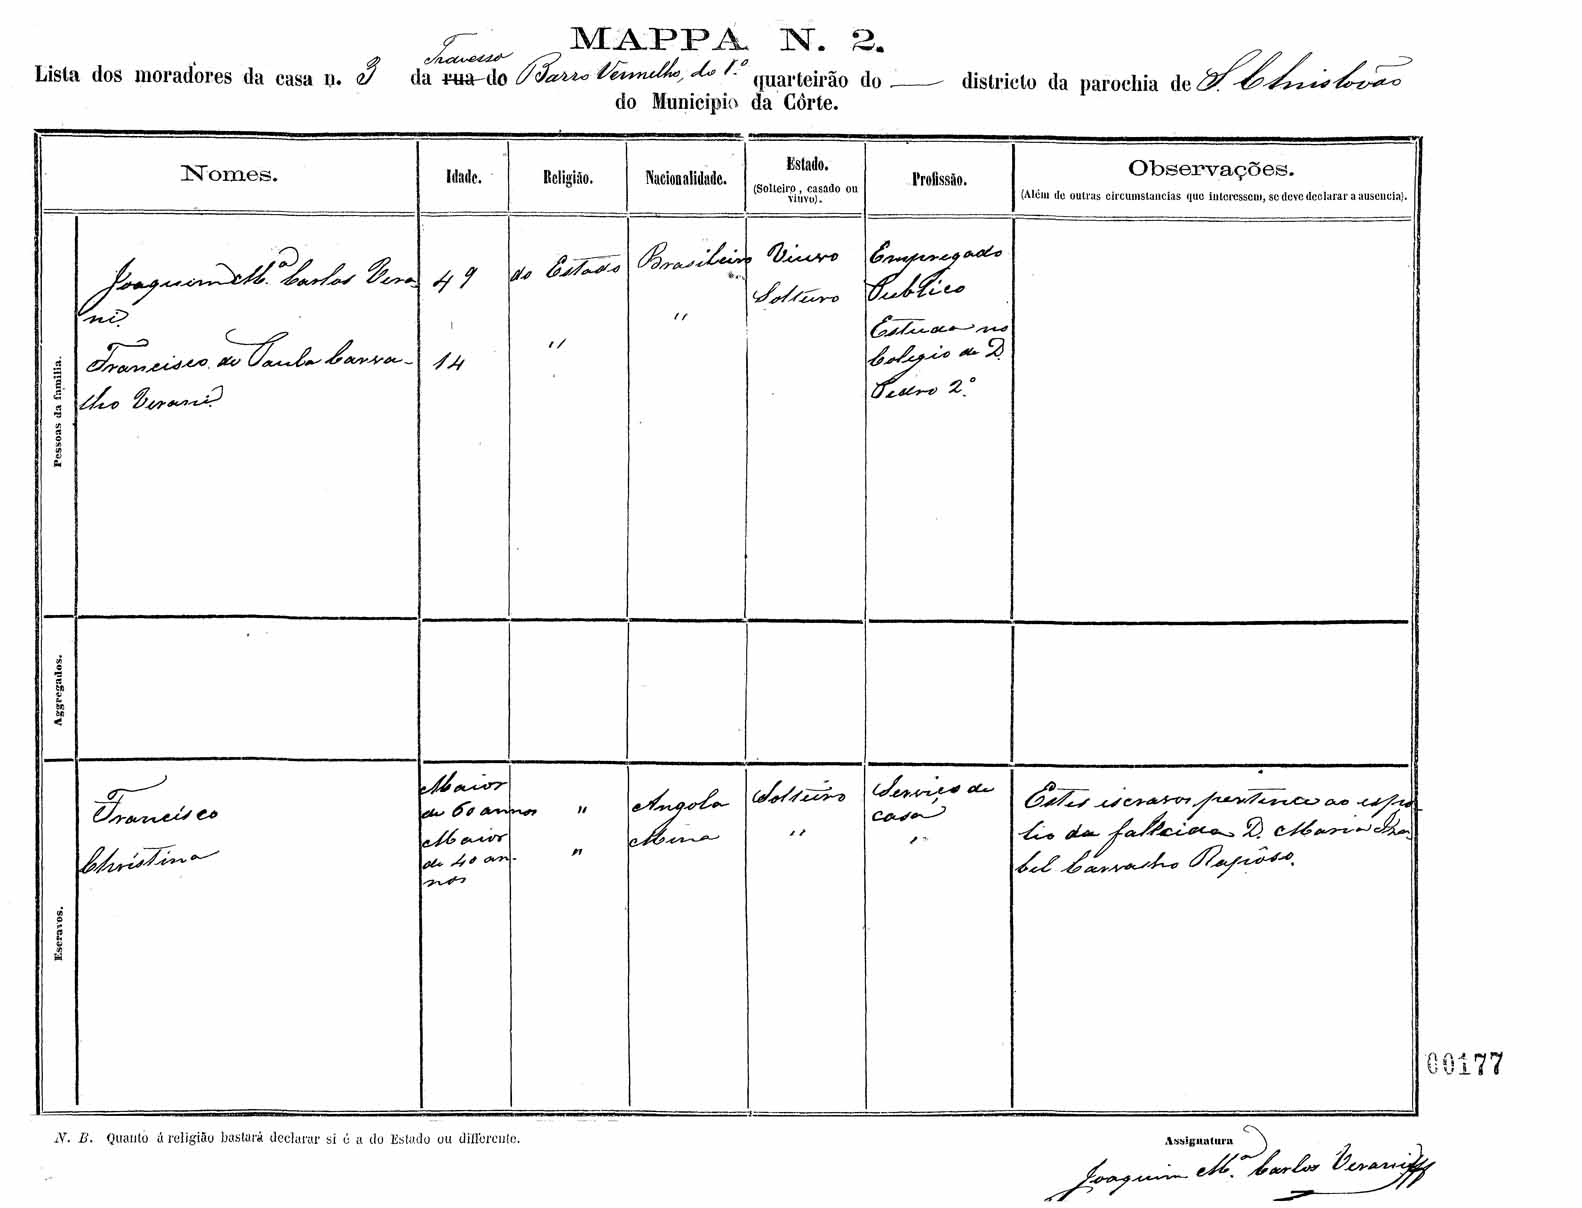 MAPPA N. 2.
Lista dos moradores da casa n. 3 da rua do Travessa Barro Vermelho, do 1.º quarteirão do — districto da parochia de S. Christovão
do Municipio da Côrte.
Nomes. Idade. Religião. Nacionalidade. Estado. (Solteiro, casado ou viuvo). Profissão. Observações. (Além de outras circumstancias que interessem, se deve declarar a ausencia).
Pessoas da familia.
Joaquim M.ª Carlos Vera- 49 do Estado Brasileiro Viuvo Empregado
ni. " Solteiro Publico
Francisco de Paula Carva- 14 " Estuda no
lho Verani. Colegio de D.
Pedro 2.º
Aggregados.
Escravos.
Francisco Maior de 60 annos " Angola Solteiro Serviço de casa
Christina Maior de 40 an- nos " Mina " "
Estes iscravos pertence ao espo
lio da fallcida D. Maria Isa-
bel Carvalho Rapôso.
00177
N. B. Quanto á religião bastará declarar si é a do Estado ou differente.
Assignatura
Joaquim M.ª Carlos Verani